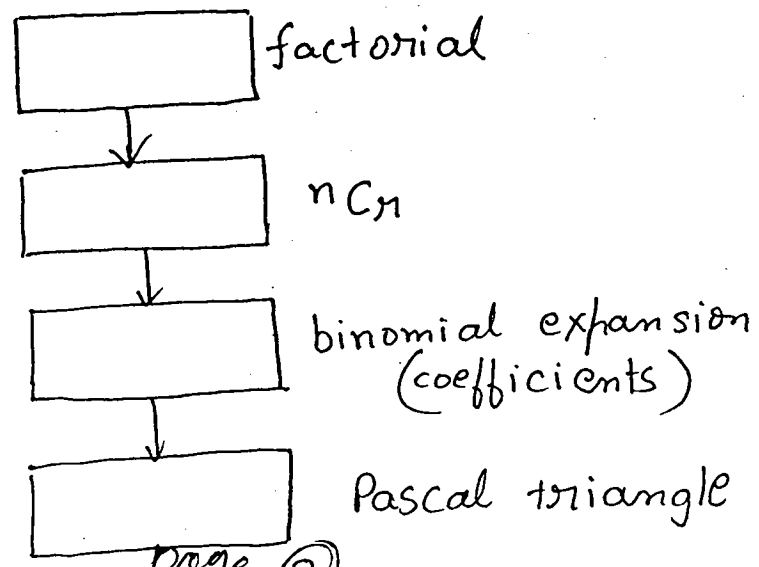 factorial
nCr
binomial expansion
(coefficients)
Pascal triangle
page